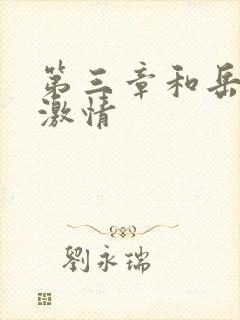 第三章和岳
激情
劉永瑞